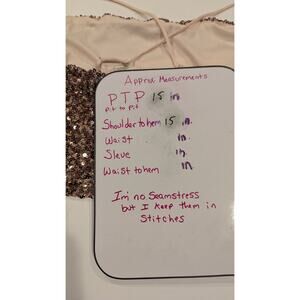 Approx Measurements
PTP 15 in.
Pit to Pit
Shoulder to hem 15 in.
Waist in.
Sleve in.
Waist to hem in
I'm no Seamstress
but I keep them in
Stitches